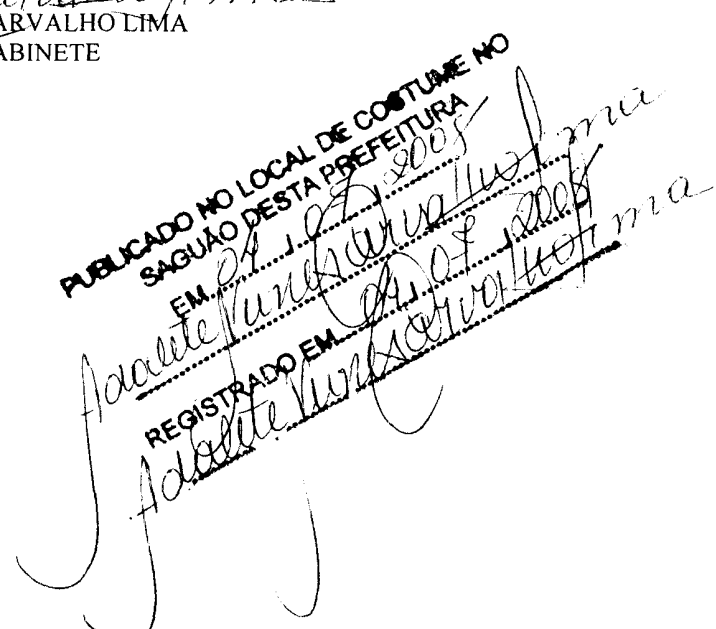 ARVALHO LIMA
ABINETE
PUBLICADO NO LOCAL DE COSTUME NO
SAGUÃO DESTA PREFEITURA
EM 04 , 07 , 2008
Adalete Nunes Carvalho Lima
REGISTRADO EM 04 , 07 , 2008
Adalete Nunes Carvalho Lima